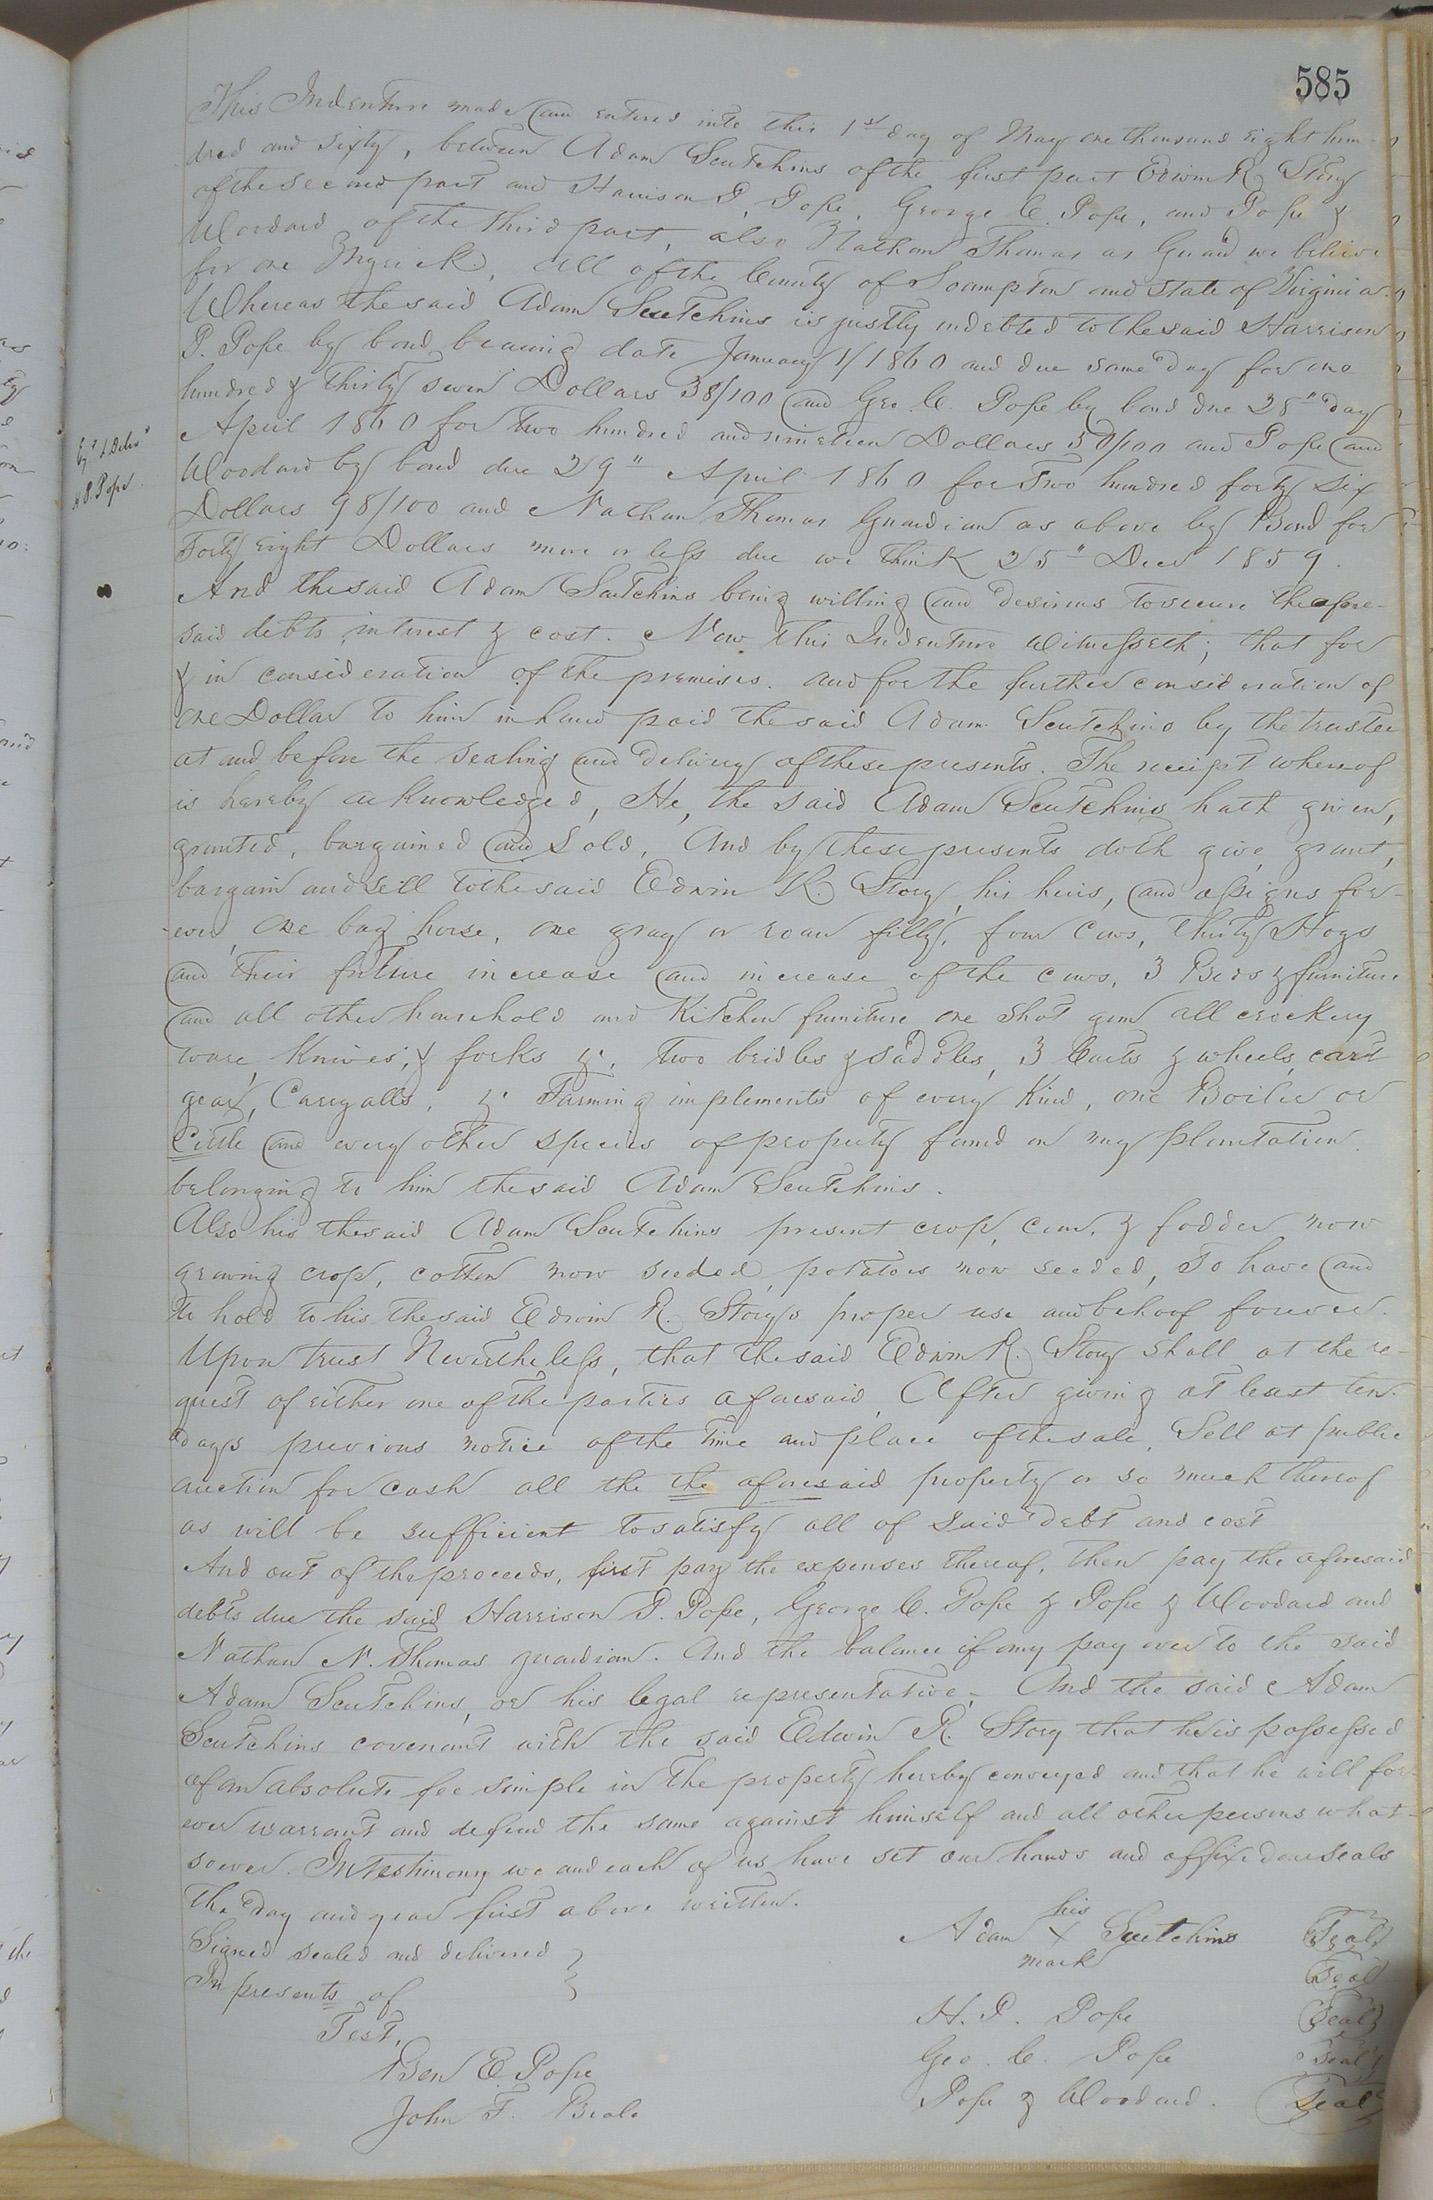 585
This Indenture made and entered into this 1st day of May one thousand eight hun-
dred and sixty, between Adam Scutchins of the first part Edwin R. Story
of the second part and Harrison P. Pope, George C. Pope, and Pope &
Woodard of the third part, also Nathan Thomas as Guard we believe
for one Myrick, all of the County of Soampton and state of Virginia.
Whereas the said Adam Scutchins is justly indebted to the said Harrison
P. Pope by bond bearing date January 1/1860 and due same day for one
hundred & thirty seven Dollars 38/100 and Geo. C. Pope by bond due 28" day
April 1860 for two hundred and nineteen Dollars 50/100 and Pope and
Woodard by bond due 29" April 1860 for Two hundred forty six
Dollars 98/100 and Nathan Thomas Guardian as above by Bond for
Forty Eight Dollars more or less due we think 25" Dec 1859.
Ex,, & Deliv"
H. P. Pope.
And the said Adam Scutchins being willing and desirous to secure the afore-
said debts, interest & cost. Now this Indenture Witnesseth; that for
& in consideration of the premises. and for the further consideration of
one Dollar to him in hand paid the said Adam Scutchins by the trustee
at and before the sealing and delivery of these presents. The receipt whereof
is hereby acknowledged, He, the said Adam Scutchins hath given,
granted, bargained and sold, And by these presents doth give, grant,
bargain and sell to the said Edwin R. Story, his heirs, and assigns for-
-ever, one bay horse, one gray or roan filly, four cows, thirty Hogs
and their future increase and increase of the cows, 3 Beds & furniture
and all other household and Kitchen furniture one shot gun all crockery
ware, Knives, & forks &c. two bridles & saddles, 3 Carts & wheels, cart
gear, Caryalls, &c Farming implements of every Kind, one Boiler or
Cittle and every other species of property found on my plantation.
belonging to him the said Adam Scutchins.
Also his the said Adam Scutchins present crop, corn, & fodder now
growing crop, cotton now seeded, potatoes now seeded, To have and
to hold to his the said Edwin R. Storys proper use and behoof forever.
Upon trust Nevertheless, that the said Edwin R. Story shall at the re-
quest of either one of the parties aforesaid, After giving at least ten
days previous notice of the time and place of the sale, Sell at public
auction for cash all the the aforesaid property or so much thereof
as will be sufficient to satisfy all of said debt and cost
And out of the proceeds, first pay the expenses thereof, then pay the aforesaid
debts due the said Harrison P. Pope, George C. Pope & Pope & Woodard and
Nathan N. Thomas guardian. And the balance if any pay over to the said
Adam Scutchins, or his legal representative. And the said Adam
Scutchins covenant with the said Edwin R. Story that he is possessed
of an absolute fee simple in the property hereby conveyed and that he will for-
ever warrant and defend the same against himself and all other persons what-
soever. In testimony we and each of us have set our hands and affixed our seals
the day and year first above written.
Signed sealed and delivered
In presents of
Test,
Ben E. Pope
John F. Beale
his
Adam X Scutchins Seal
mark
Seal
H. P. Pope Seal
Geo. C. Pope Seal
Pope & Woodard. Seal